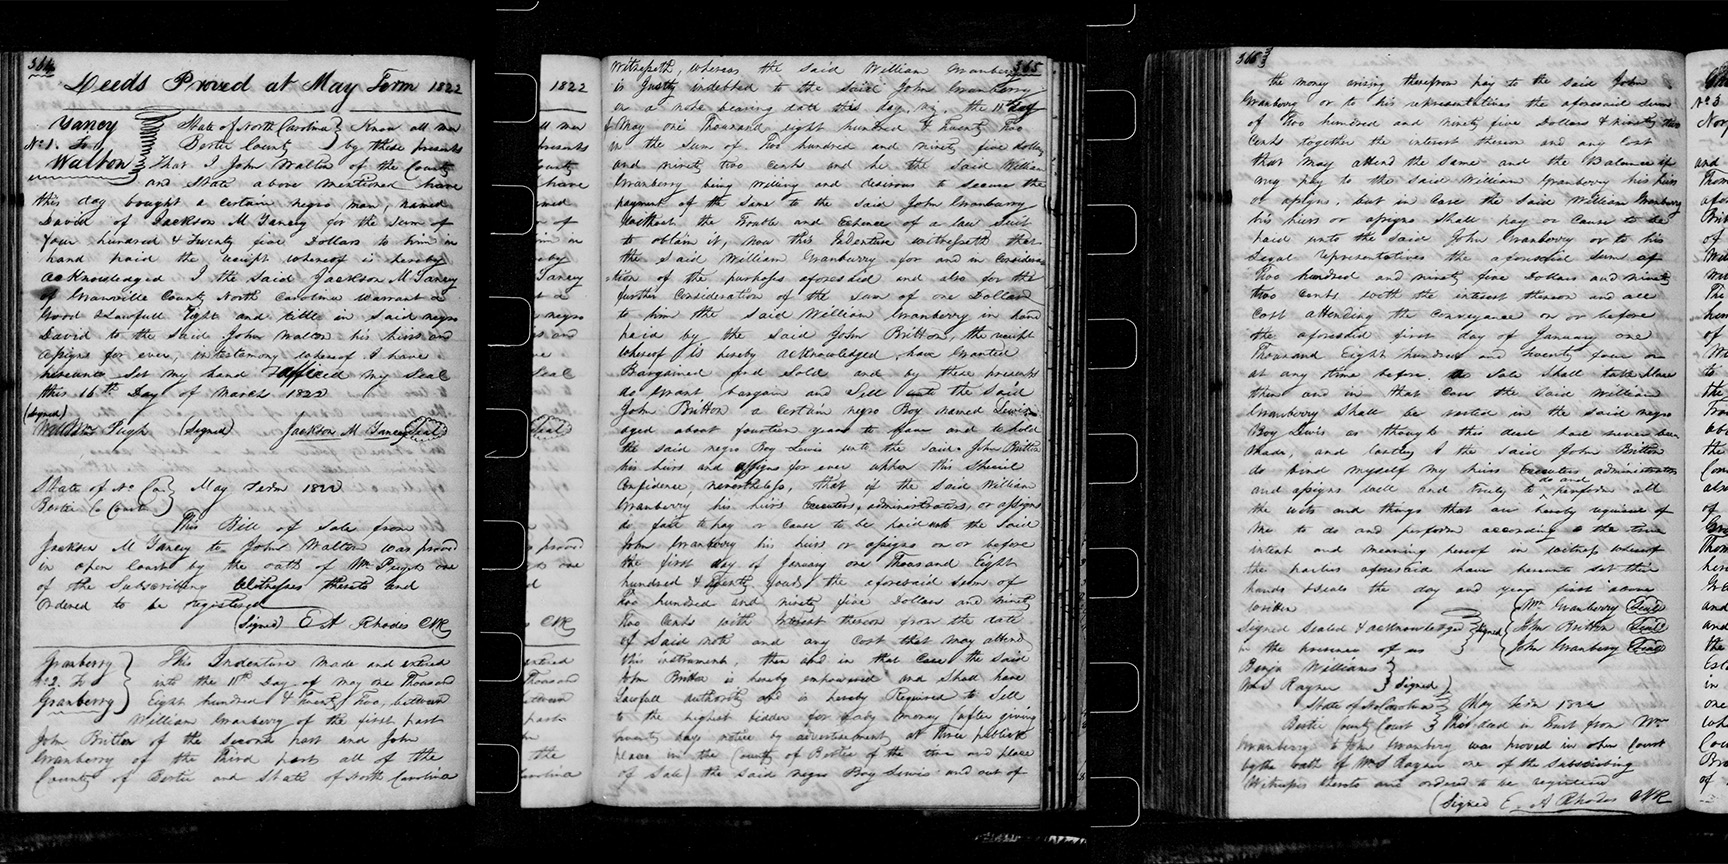 364
Deeds Proved at May Term 1822
Yancy
No 1. To
Walton
State of North Carolina } Know all men
Bertie County } by these presents
that I John Walton of the County
and State above mentioned have
this day bought a certain negro man, named
David of Jackson M Yancy for the sum of
four hundred & Twenty five Dollars to him in
hand paid the receipt whereof is hereby
acknowledged I the said Jackson M Yancy
of Granville County North Carolina warrant a
good & Lawfull Right and title in said negro
David to the said John Walton his heirs and
assigns for ever, in testimony whereof I have
hereunto set my hand & affixed my Seal
this 16th Day of March 1822
(Signed)
Wm Pugh (Signed) Jackson M Yancy (Seal)
State of No Car } May Term 1822
Bertie Co Court }
This Bill of Sale from
Jackson M Yancy to John Walton was proved
in open Court by the oath of Wm Pugh one
of the Subscribing Witnesses thereto and
Ordered to be registered
(Signed) E A Rhodes Clk
Granberry
No 2. To
Granberry
This Indenture made and entered
into the 11th Day of May one Thousand
Eight hundred & Twenty Two, between
William Granberry of the first part
John Britton of the Second part and John
Granberry of the Third part all of the
County of Bertie and State of North Carolina
1822
365
Witnesseth, whereas the said William Granberry
is Justly indebted to the said John Granberry
in a note bearing date this day, viz, the 11th day
of May one Thousand eight hundred & Twenty Two
in the sum of Two hundred and ninety five dollars
and ninety two cents and he the said William
Granberry being willing and desirous to secure the
payment of the same to the said John Granberry
without the Trouble and Expence of a law Suit
to obtain it, now this Indenture witnesseth that
the said William Granberry for and in Considera
tion of the purposes aforesaid and also for the
further Consideration of the Sum of one Dollar
to him the said William Granberry in hand
paid by the said John Britton, the receipt
whereof is hereby acknowledged, have Granted
Bargained and Sold and by these presents
do Grant bargain and Sell unto the Said
John Britton a certain negro Boy named Lewis
aged about fourteen years to have and to hold
the said negro Boy Lewis unto the said John Britton
his heirs and assigns for ever uppon this Special
Confidence, nevertheless, that if the said William
Granberry his heirs Executors, administrators, or assigns
do fail to pay or Cause to be paid unto the Said
John Granberry his heirs or assigns on or before
the first day of January one Thousand Eight
hundred & Twenty four the aforesaid sum of
Two hundred and ninety five Dollars and ninety
Two Cents with Interest thereon from the date
of Said note and any Cost that may attend
this instrument, then and in that Case the said
John Britton is hereby empowered and Shall have
Lawfull authority and is hereby Required to Sell
to the highest bidder for ready money (after giving
twenty days notice by advertisement at three publick
places in the County of Bertie of the time and place
of Sale) the said negro Boy Lewis and out of
365
the money arising therefrom pay to the said John
Granberry or to his representatives the aforesaid sum
of Two hundred and ninety five Dollars & ninety two
Cents together the interest thereon and any Cost
that may attend the same and the Balance if
any pay to the said William Granberry his heirs
or assigns, but in Case the Said William Granberry
his heirs or assigns Shall pay or Cause to be
paid unto the said John Granberry or to his
Legal representatives the aforesaid sum of
Two hundred and ninety five Dollars and ninety
two Cents with the interest thereon and all
Cost attending the Conveyance on or before
the aforesaid first day of January one
Thousand Eight hundred and Twenty four or
at any time before a Sale Shall take place
then and in that Case the said William
Granberry Shall be vested in the said negro
Boy Lewis as though this deed had never been
Made, and lastly I the said John Britton
do bind myself my heirs Executors administrators
and assigns well and Truly to do and perform all
the acts and things that are hereby required of
me to do and perform according to the true
intent and meaning hereof in witness whereof
the parties aforesaid have hereunto set their
hands & Seals the day and year first above
written
Wm Granberry (Seal)
Signed Sealed & acknowledged } Signed { John Britton (Seal)
in the presence of us } { John Granberry (Seal)
Benjn Williams }
Wm S Rayner } Signed)
State of No Carolina } May Term 1822
Bertie County Court } This deed in Trust from Wm
Granberry to John Granberry was proved in open Court
by the oath of Wm S Rayner one of the Subscribing
Witnesses thereto and ordered to be registered
(Signed E. A Rhodes Clk